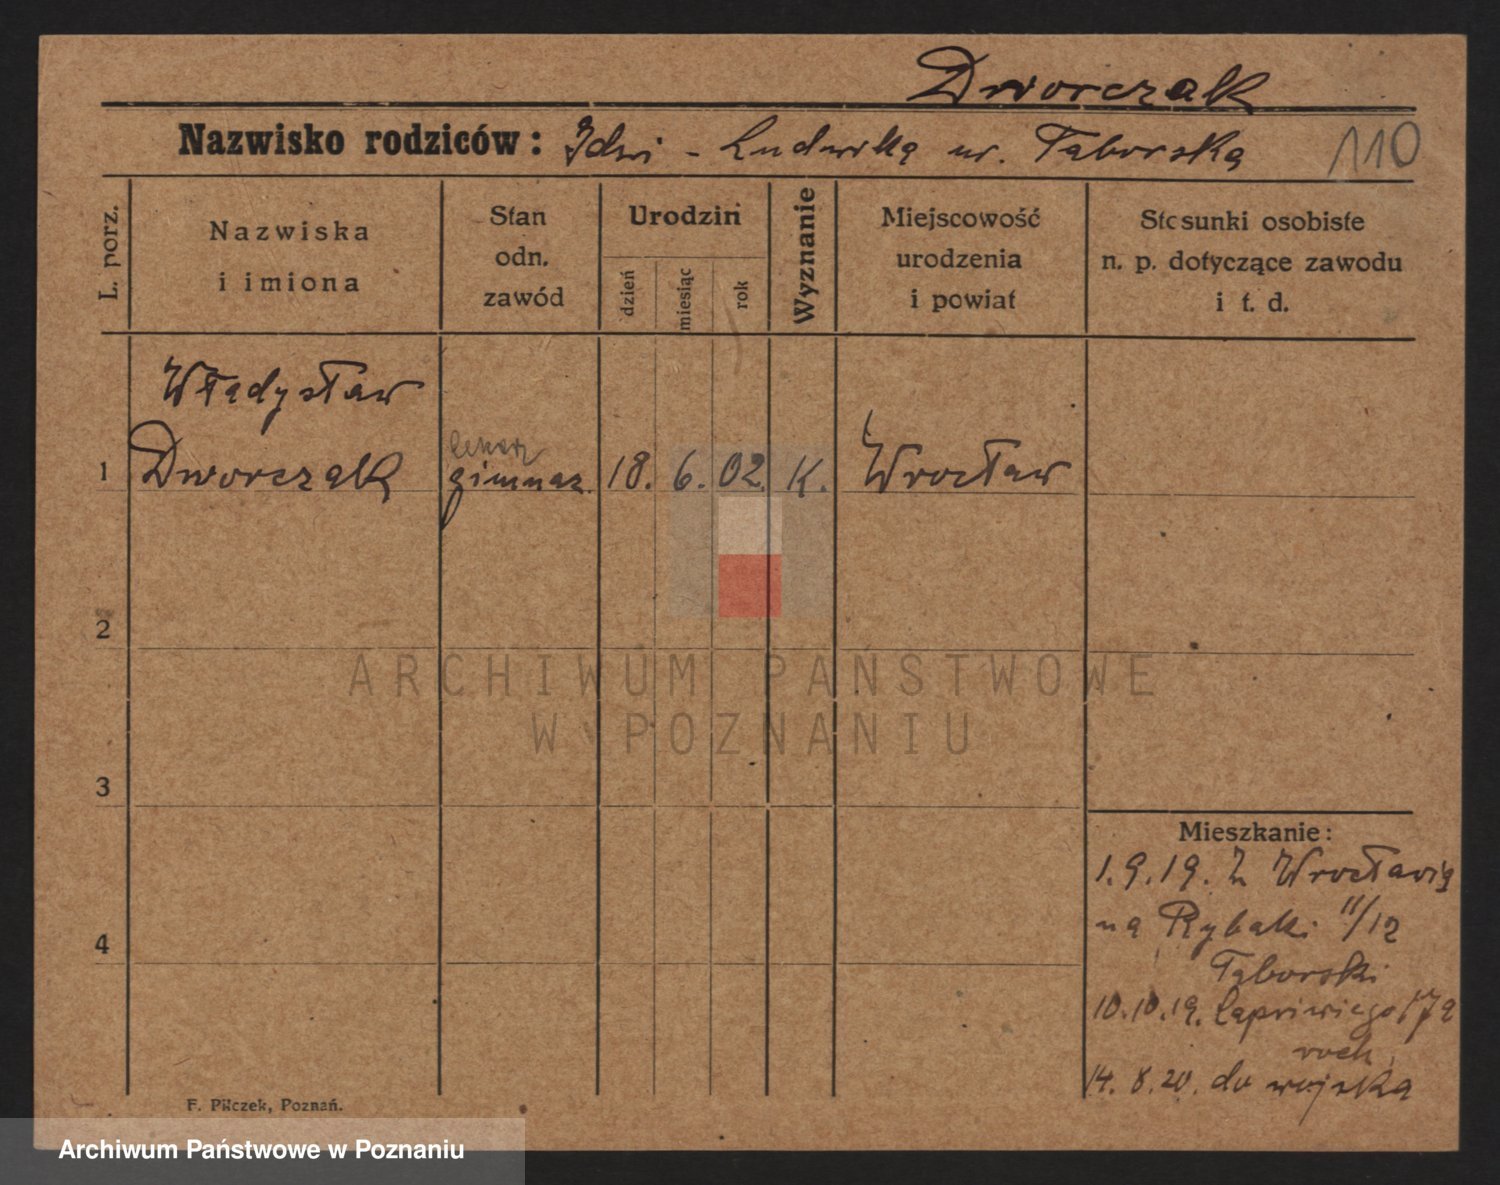 Dworczak
Nazwisko rodziców: Idzi - Ludwika ur. Taborska
110
L. porz.
Nazwiska
i imiona
Stan
odn.
zawód
Urodzin
dzień
miesiąc
rok
Wyznanie
Miejscowość
urodzenia
i powiat
Stosunki osobiste
n. p. dotyczące zawodu
i t. d.
Władysław
lekarz
1 Dworczak gimnaz. 18. 6. 02. K. Wrocław
2
3
4
Mieszkanie:
1.9.19. z Wrocławia
na Rybaki 11/12
Taborski
10.10.19.
14.8.20. do wojska
F. Pilczek, Poznań.
ARCHIWUM PAŃSTWOWE
W POZNANIU
Archiwum Państwowe w Poznaniu